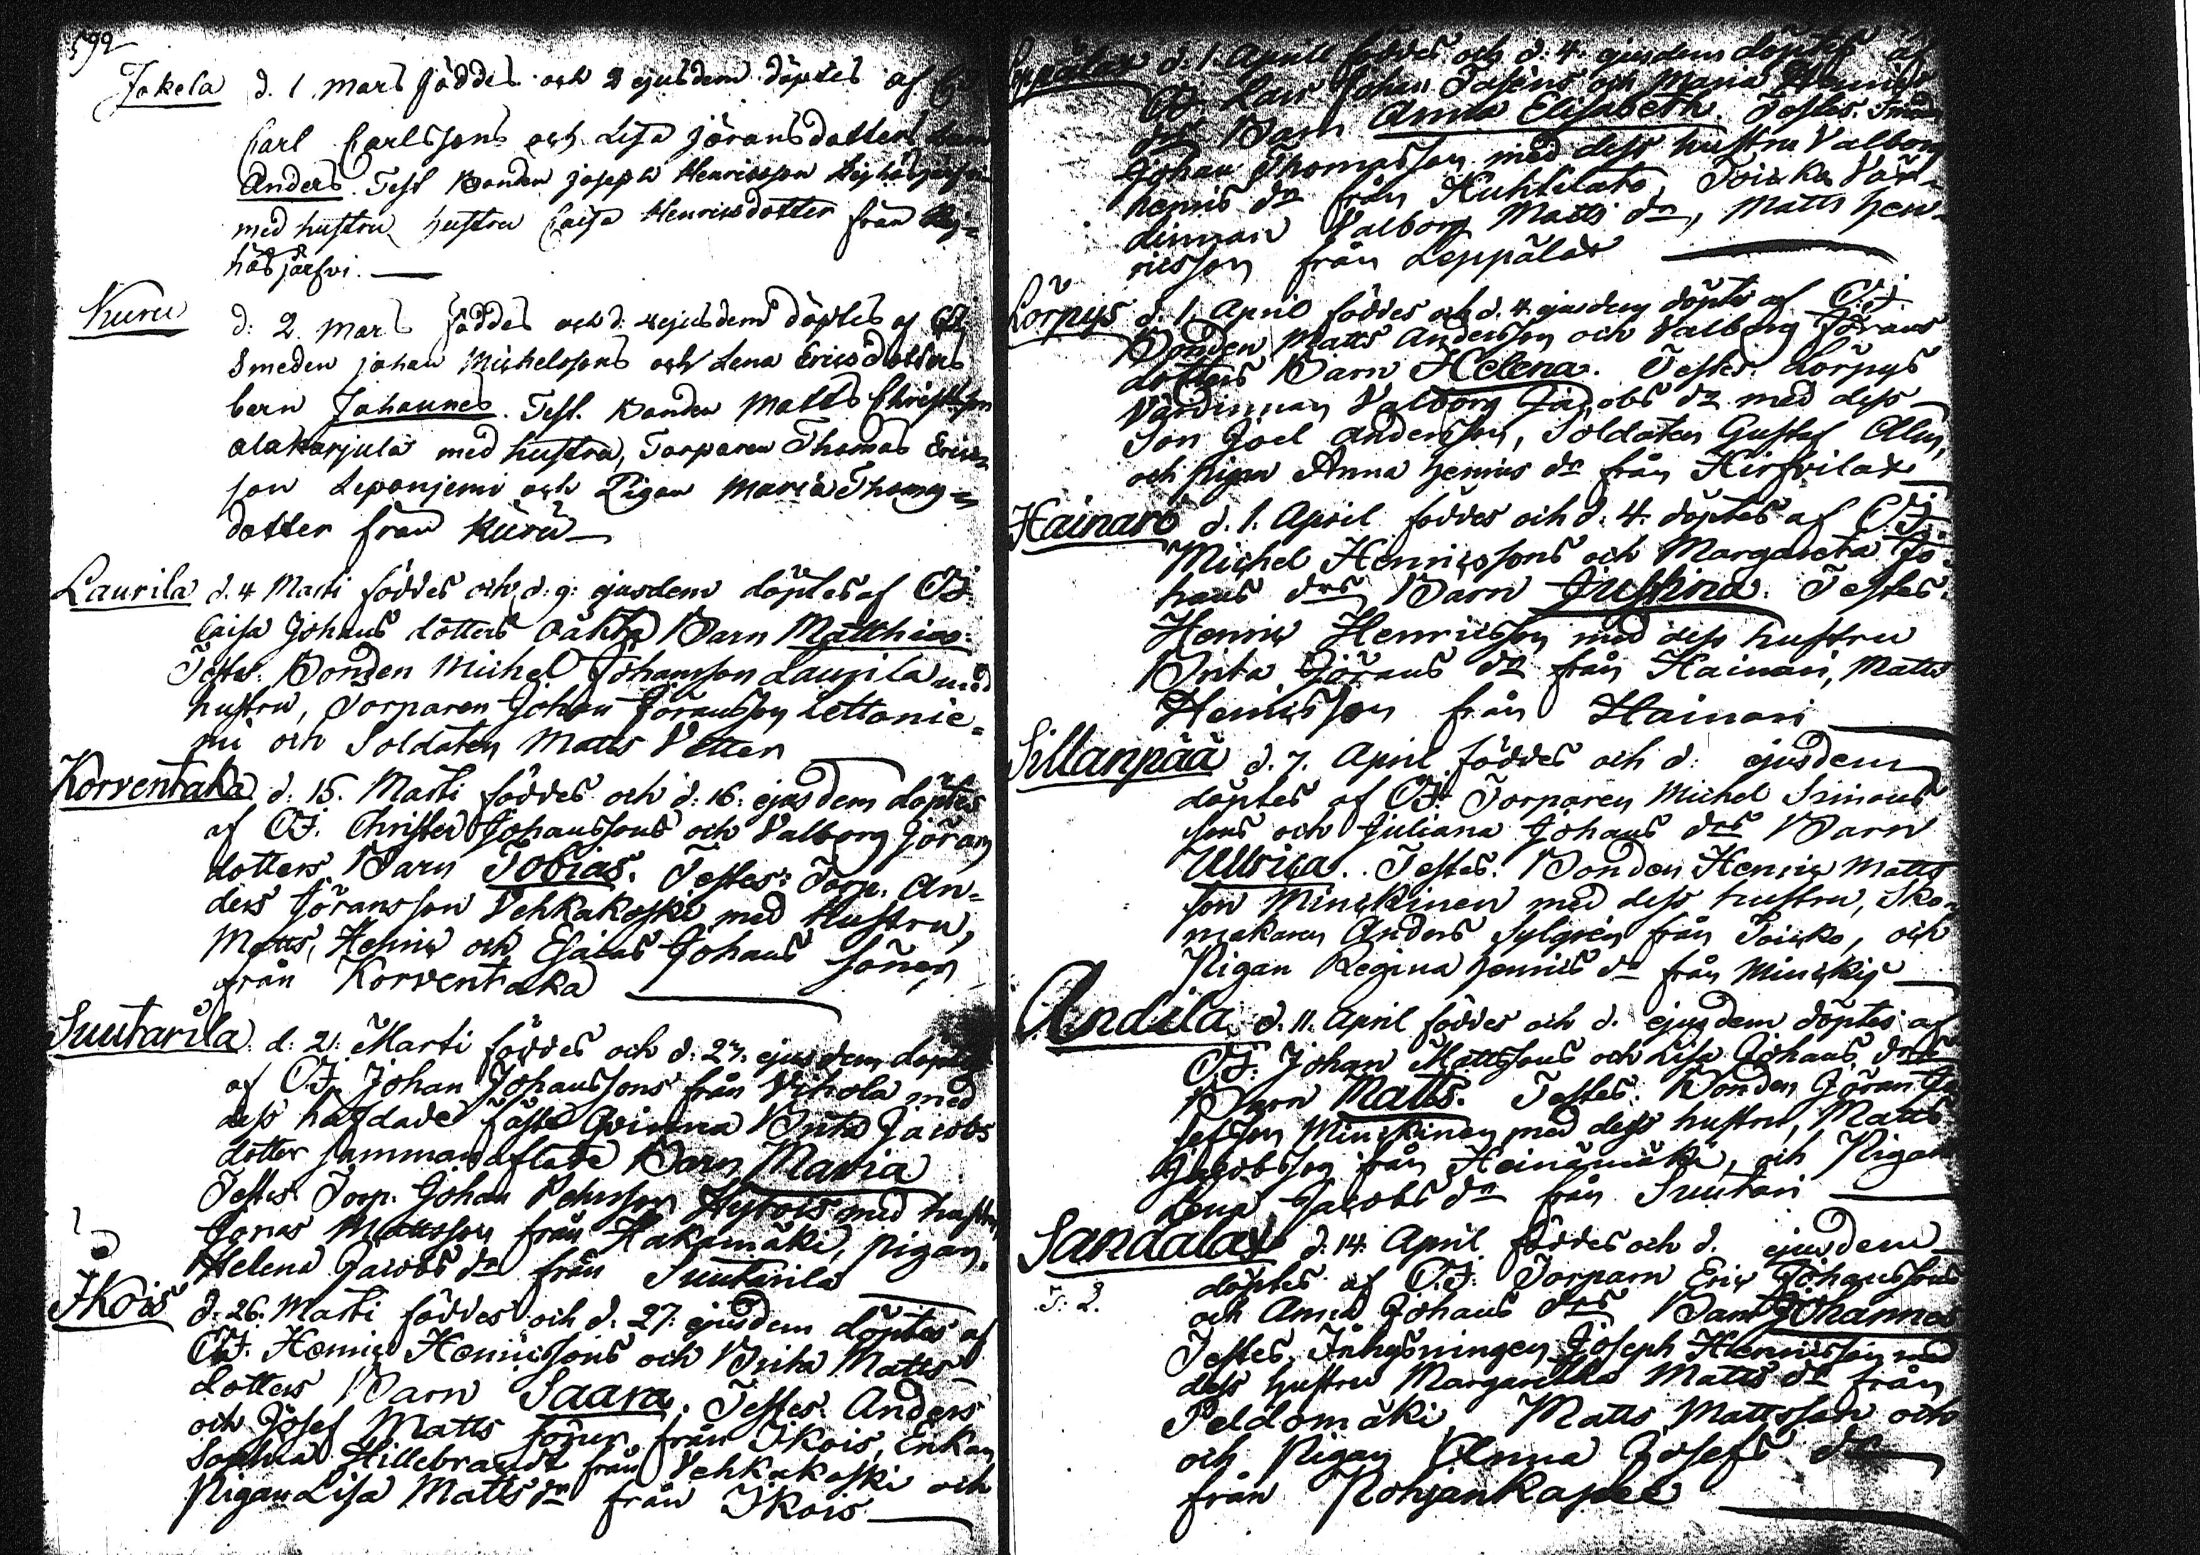 592
Jokela d. 1 Mars föddes och 2 ejusdem döptes af
Carl Carlssons och Lisa Jöransdotters
Anders. Test Bonden Joseph Henricsson
med hustru, hustru Caisa Henricsdotter från
häsjärfvi.
Kuru d: 2 Mars föddes och d. 4 ejusdem döptes af
Smeden Johan Michelssons och Lena Ericsdotters
barn Johannes. Test. Bonden Matts Christersson
alakarjula med hustru, Torparen Thomas Erics-
son Leponjemi och Pigan Maria Thomas-
dotter från Kuru
Laurila d. 4 Marti föddes och d. 9: ejusdem döptes af CF.
Caisa Johans dotters oäkta Barn Matthias.
Testes. Bonden Michel Johansson Laurila med
hustru, Torparen Johan Jöransson Lettonie-
mi och Soldaten Matts Vetter
Korventaka d: 15. Marti föddes och d: 16: ejusdem döptes
af CF. Christer Johanssons och Valborg Jörans
dotters Barn Tobias. Testes: Torp. An-
ders Jöransson Vehkakoski med Hustru,
Matts, Henric och Esaias Johans söner
från Korventaka
Suutarila. d: 21. Marti föddes och d: 27: ejusdem döptes
af CF. Johan Johanssons från Vihola med
dess häfdade fäste Qvinna Brita Jacobs
dotter sammanaflade Barn Maria
Testes Torp. Johan Pehrsson Hytois med hustru
Jonas Mattsson från Hakamäki, pigan
Helena Jacobs dr från Suutarila
Ikois d: 26: Marti föddes och d. 27: ejusdem döptes af
CF. Henric Henricssons och Brita Matts
dotters Barn Saara. Testes. Anders
och Josef Matts söner från Ikois, Enkan
Sophia Hillebrandt från Vehkakoski och
Pigan Lisa Matts dr från Ikois
Leppälax d. 1. April föddes och d: 4. ejusdem döptes af
Lars Johan och Maria
Barn Anna Elisabeth. Testes.
Johan Thomasson med dess hustru Valborg
henrics dr från Huhtilato, Toicka Vär-
dinnan Valborg Matts dr, Matts Hen-
ricsson från Leppälax
Lörpys d. 1. April föddes och d. 4. ejusdem döptes af CF.
Bonden Matts Andersson och Valborg Jörans
dotters Barn Helena. Testes. Lörpys
Värdinnan Valborg Jacobs dr med dess
Son Joel Andersson, Soldaten Gustaf Alm,
och pigan Anna Henrics dr från Hirfvilax
Hainaro d. 1. April föddes och d: 4. döptes af CF.
Michel Henricssons och Margareta Jo-
hans drs Barn Justina. Testes.
Henric Henricsson med dess hustru
Brita Jörans dr från Hainari, Matts
Henricsson från Hainari
Sillanpää d. 7. April föddes och d: ejusdem
döptes af CF. Torparen Michel Simons
sons och Juliana Johans drs Barn
Ullrica. Testes. Bonden Henric Matts
son Minckinen med dess hustru, Sko-
makaren Anders Sylgrén från Toicko, och
Pigan Regina Henrics dr från Minckis
Andila d. 11. April föddes och d. ejusdem döptes af
CF. Johan Mattssons och Lisa Johans drs
Barn Matts. Testes. Bonden Jöran Jo
sefsson Minckinen med dess hustru, Matts
Jacobsson från Heinämäki, och Pigan
Lena Jacobs dr från Suutari
Sandalax d. 14. April föddes och d. ejusdem
döptes af CF. Torparn Eric Johanssons
och Anna Johans drs Barn Johannes
Testes, Inhysningen Joseph Henricsson med
dess hustru Margaretha Matts dr från
Peldomäki Matts Mattsson och
och Pigan Anna Josefs dr
från Rohjankapee